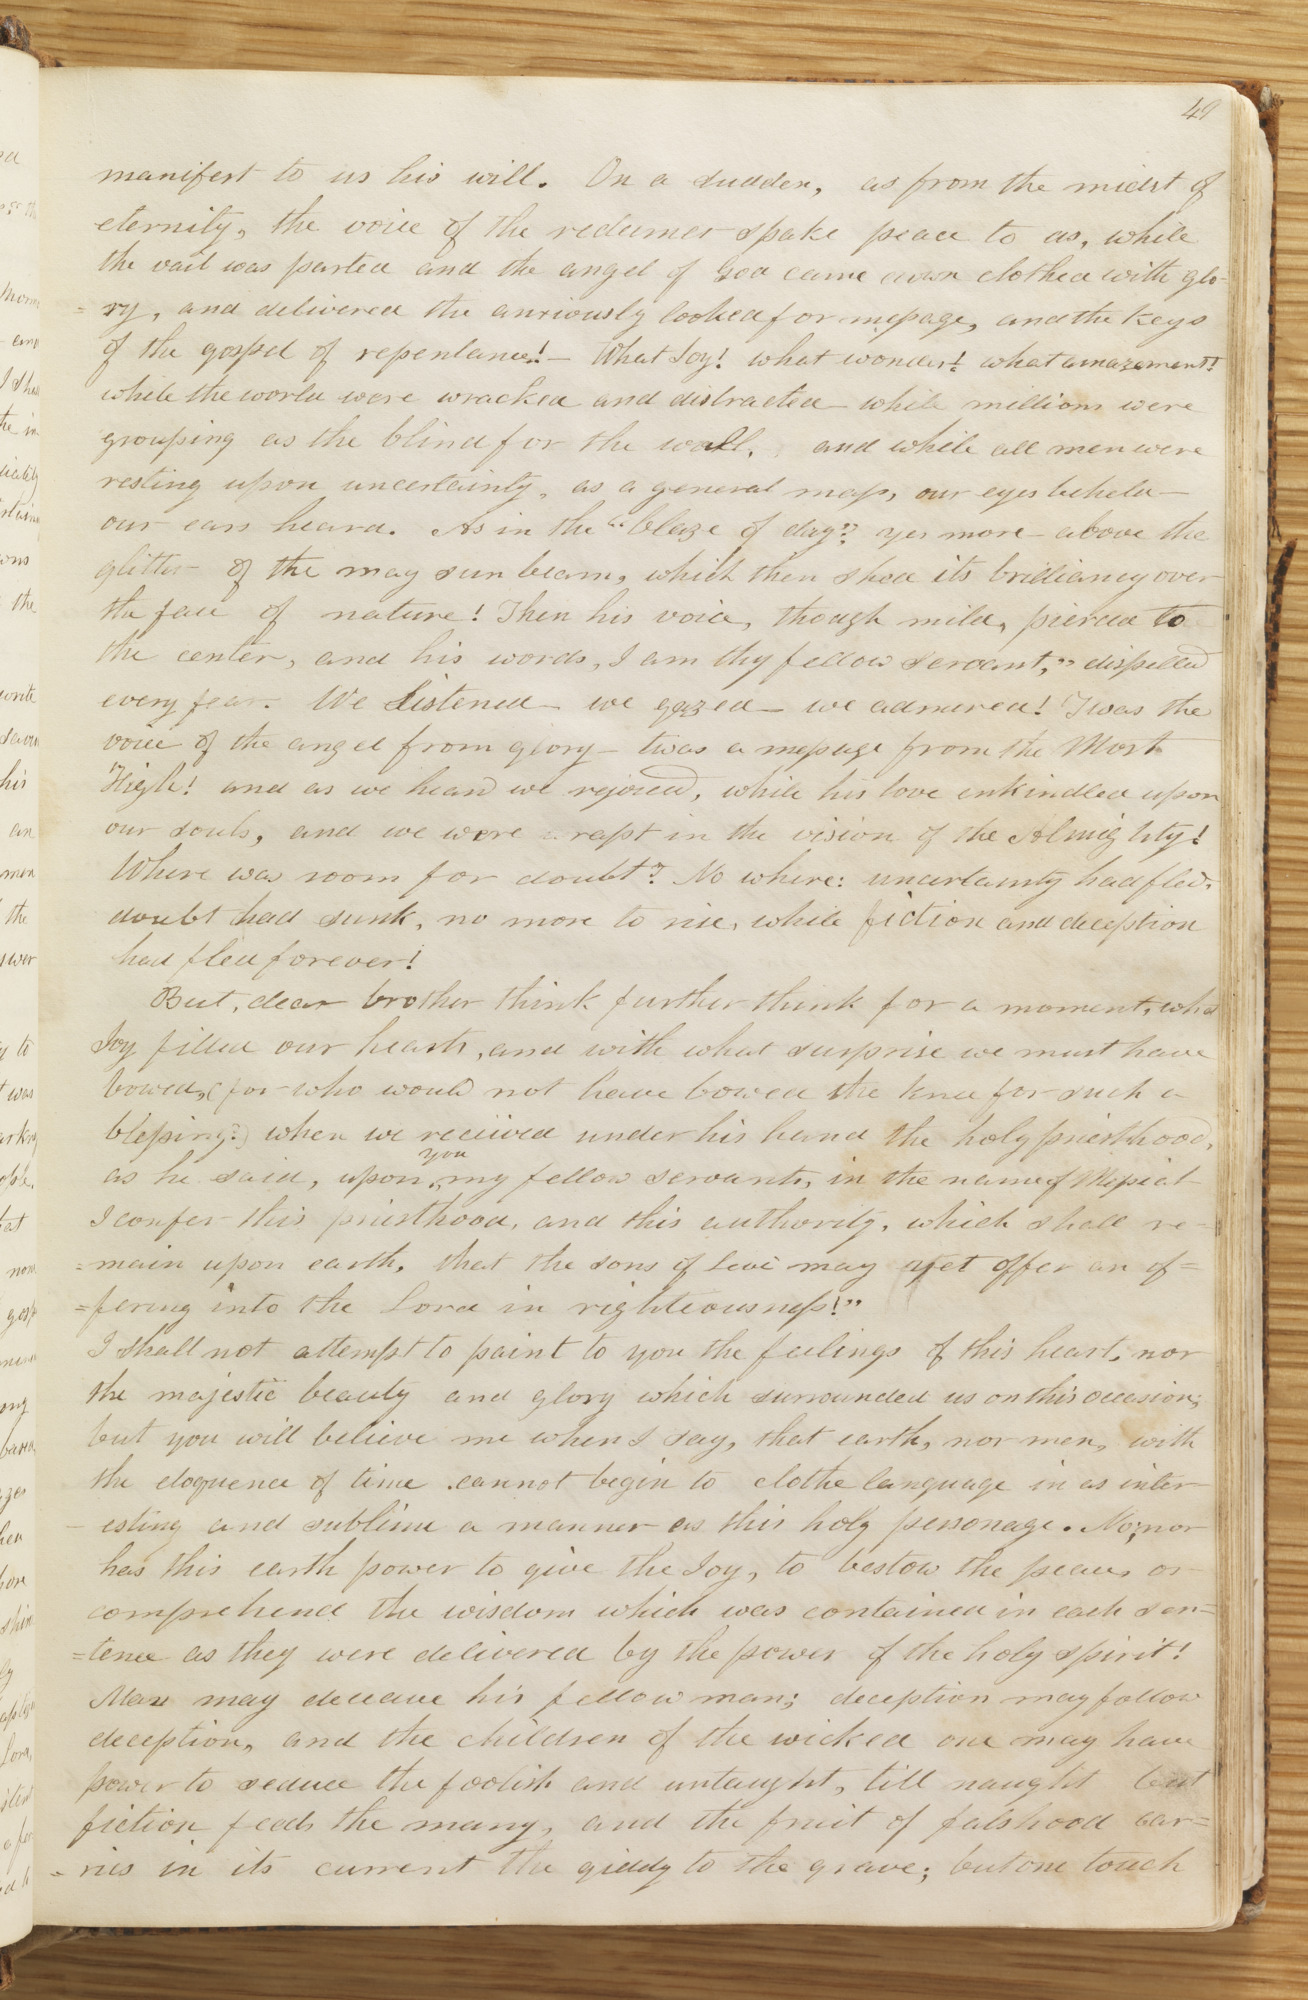 49
manifest to us his will. On a sudden, as from the midst of
eternity, the voice of the redeemer spake peace to us, while
the vail was parted and the angel of God came down clothed with glo-
=ry, and delivered the anxiously looked for message, and the keys
of the gospel of repentance!— What Joy! what wonder! what amazement!
while the world were wracked and distracted— while millions were
grouping as the blind for the wall, and while all men were
resting upon uncertainty, as a general mass, our eyes beheld—
our ears heard. As in the "blaze of day" yes more— above the
glitter of the may sun beam, which then shed its brilliancy over
the face of nature! Then his voice, though mild, pierced to
the center, and his words, I am thy fellow servant," dispelled
every fear. We Listened— we gazed— we admired! Twas the
voice of the angel from glory— twas a message from the Most
High! and as we heard we rejoiced, while his love enkindled upon
our souls, and we were rapt in the vision of the Almighty!
Where was room for doubt? No where: uncertainty had fled,
doubt had sunk, no more to rise, while fiction and deception
had fled forever!
But, dear brother think further think for a moment, what
Joy filled our hearts, and with what surprise we must have
bowed, (for who would not have bowed the knee for such a
blessing?) when we received under his hand the holy priesthood,
as he said, upon you my fellow servants, in the name of Messiah
I confer this priesthood, and this authority, which shall re-
=main upon earth, that the sons of Levi may yet offer an of=
=fering into the Lord in righteousness!"
I shall not attempt to paint to you the feelings of this heart, nor
the majestic beauty and glory which surrounded us on this occasion;
but you will believe me when I say, that earth, nor men, with
the eloquence of time cannot begin to clothe language in as inter
-esting and sublime a manner as this holy personage. No; nor
has this earth power to give the Joy, to bestow the peace, or
comprehend the wisdom which was contained in each sen=
=tence as they were delivered by the power of the holy spirit!
Man may deceave his fellow man; deception may follow
deception, and the children of the wicked one may have
power to seduce the foolish and untaught, till naught but
fiction feeds the many, and the fruit of falshood car=
=ries in its current the giddy to the grave; but one touch